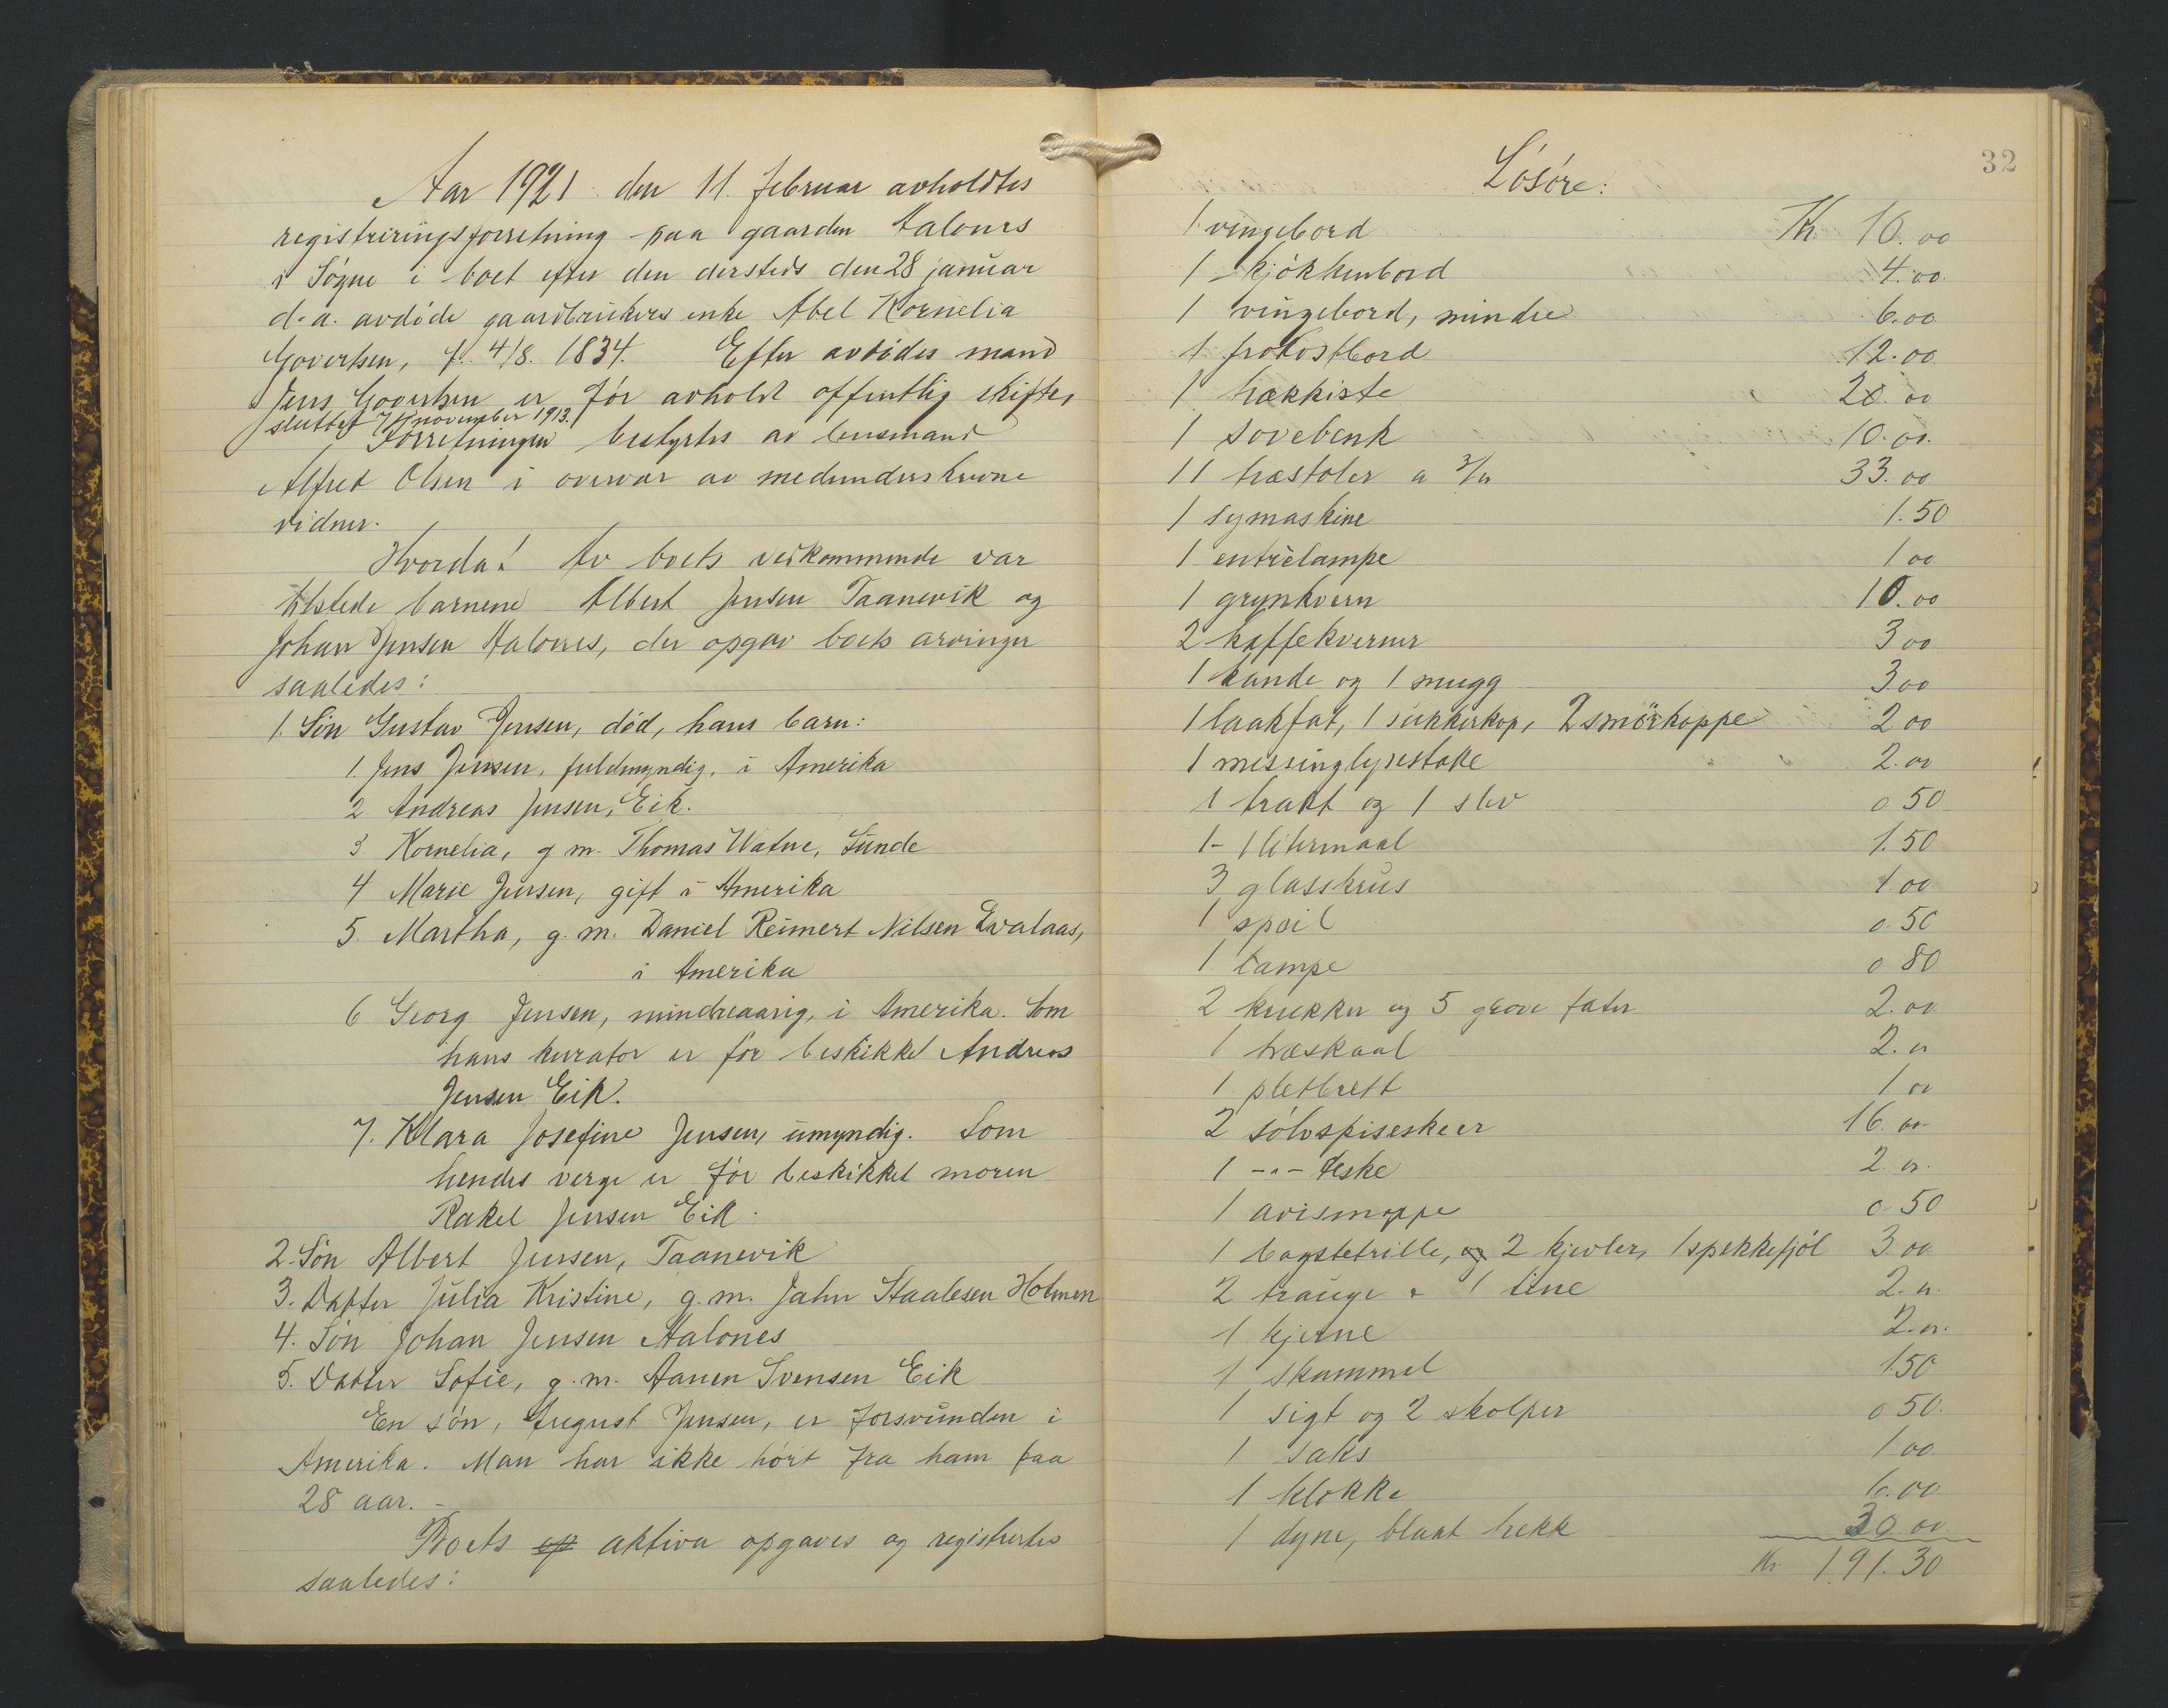 Aar 1921 den 11. februar avholdtes
registreringsforretning paa gaarden Aalones
i Søgne i boet efter den dersteds den 28 januar
d. a. avdøde gaardbrukers enke Abel Kornelia
Govertsen, f. 4/8. 1834. Efter avdødes mand
Jens Govertsen er før avholdt offentlig skifte,
sluttet november 1913.
Forretningen bestyrtes av lensmand
Alfred Olsen i overvær av medunderskrevne
vidner.
Hvorda! Av boets vedkommende var
tilstede barnene Albert Jensen Taanevik og
Johan Jensen Aalones, der opgav boets arvinger
saaledes:
1. Søn Gustav Jensen, død, hans barn:
1. Jens Jensen, fuldmyndig, i Amerika
2 Andreas Jensen, Eik.
3 Kornelia, g m. Thomas Watne, Sunde
4 Marie Jensen, gift i Amerika
5. Martha, g. m. Daniel Reimert Nilsen
i Amerika
6 Georg Jensen, mindreaarig, i Amerika. Som
hans kurator er før beskikket Andreas
Jensen Eik.
7. Klara Josefine Jensen, umyndig. Som
hendes verge er før beskikket moren
Rakel Jensen Eik.
2. Søn Albert Jensen, Taanevik
3. Datter Julia Kristine, g. m. Jahn Staalesen Holmen
4. Søn Johan Jensen Aalones
5. Datter Sofie, g. m. Aanen Svensen Eik
En søn, August Jensen, er forsvunden i
Amerika. Man har ikke hørt fra ham paa
28 aar. -
Boets op aktiva opgaves og registrertes
saaledes:
32
Løsøre:
1 vingebord Kr. 10.00
1 kjøkkenbord 4.00
1 vingebord, mindre 6.00
1 frokostbord 12.00
1 trækkiste 20.00
1 sovebenk 10.00
11 træstoler a 3/00 33.00
1 symaskine 1.50
1 entrélampe 1 00
1 grynkvern 10.00
2 kaffekverner 3 00
1 kande og 1 mugg 3 00
1 laakfat, 1 sukkerkop, 2 smørkoppe 2 00
1 messinglysestake 2.00
1 trakt og 1 slev 0 50
1- 1 litermaal 1.50
3 glasskrus 1.00
1 speil 0 50
1 lampe 0 80
2 krukker og 5 grove fater 2.00
1 træskaal 2.00
1 pletbrett 1 00
2 sølvspiseskeer 16.00
1 -"- teske 2.00
1 avismappe 0.50
1 bagstetrille, og 2 kjevler, 1 spekkefjøl 3 00
2 trauge & 1 tine 2.00
1 kjerne 2.00
1 skammel 1.50
1 sigt og 2 skolper 0 50.
1 saks 1 00.
1 klokke 6.00.
1 dyne, blaat trekk 30 00
Kr. 191.30